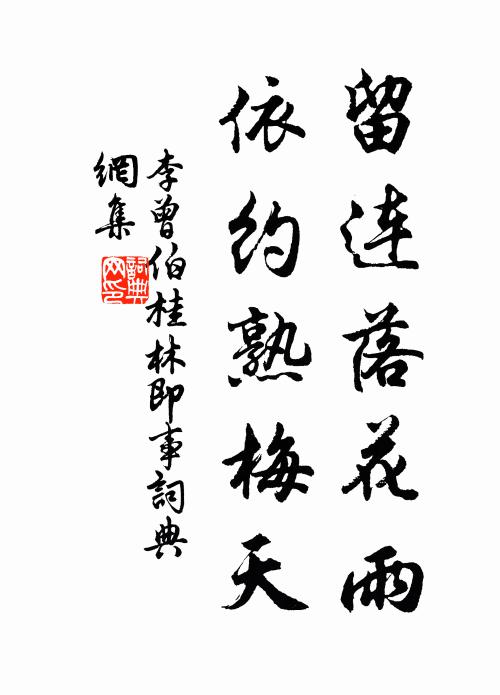 留连落花雨
依约熟梅天
李曾伯桂林即事詞典
網集
詞典網印